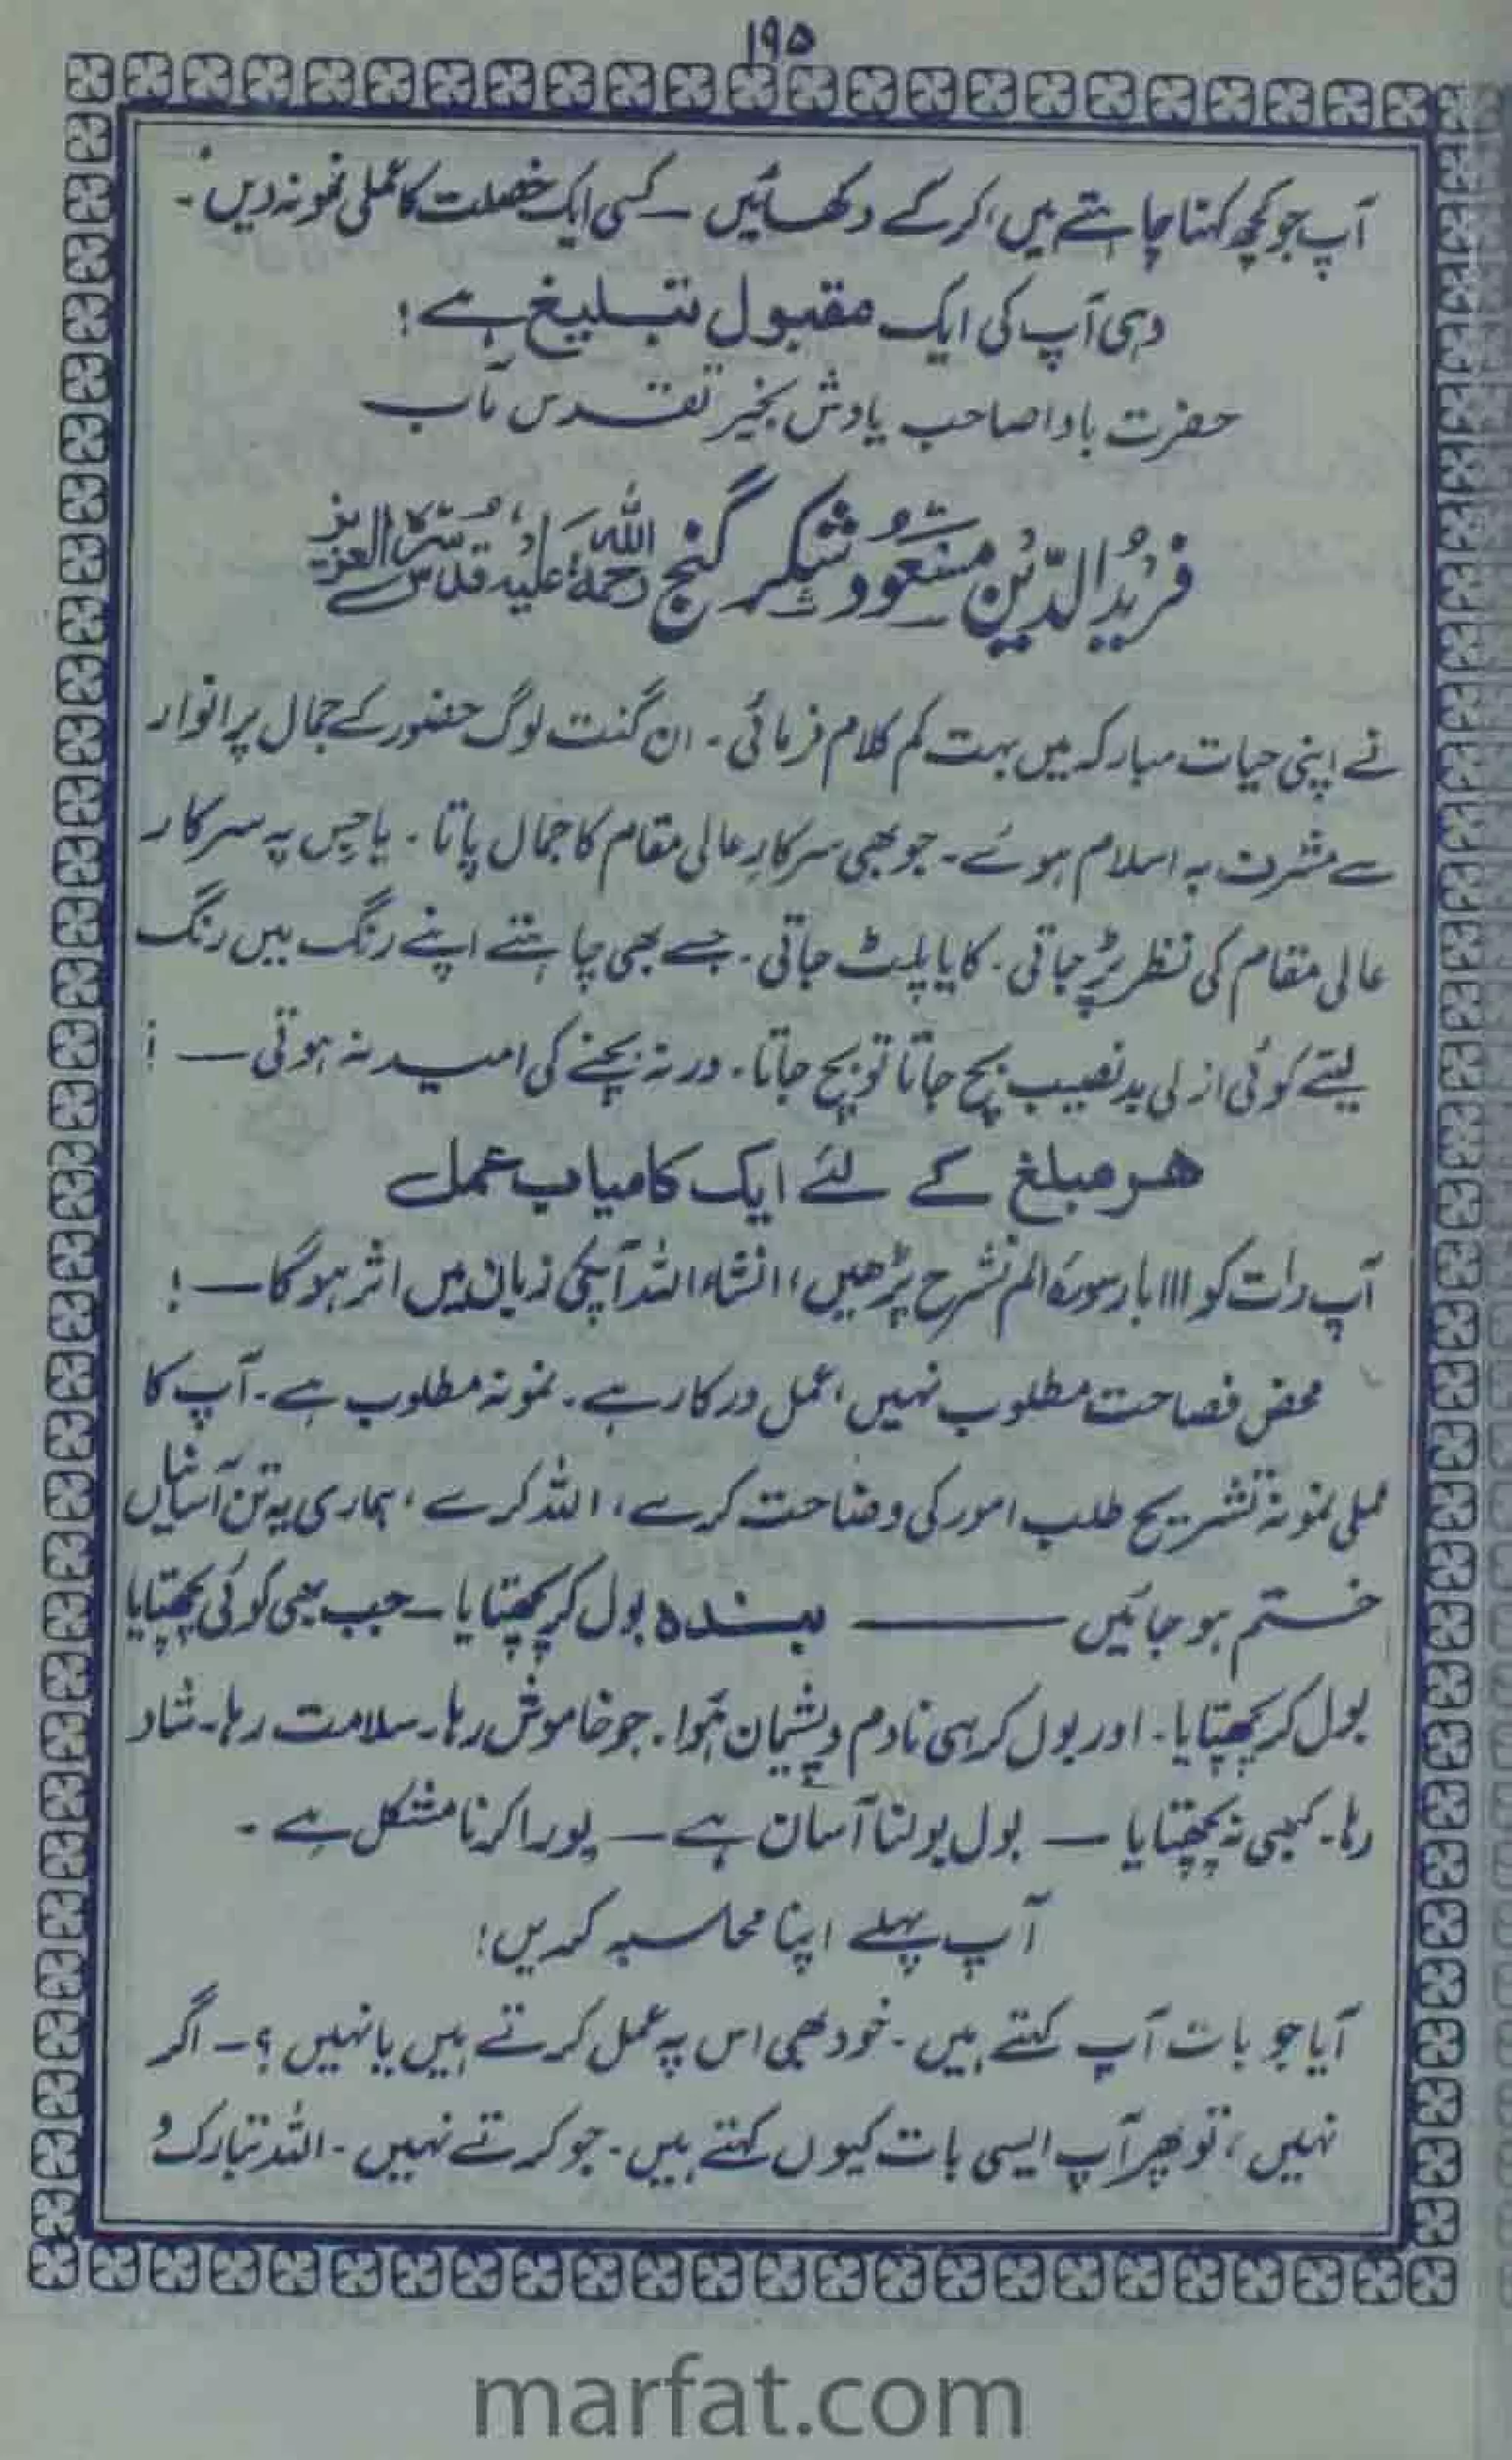 ۱۹۵
آپ جو کچھ کہنا چاہتے ہیں، کر کے دکھائیں ـ کسی ایک خصلت کا عملی نمونہ دیں ۔
وہی آپ کی ایک مقبول تبلیغ ہے !
حضرت باوا صاحب یادش بخیر تقدس مآب
فرید الدین مسعود شکر گنج رحمۃ اللہ علیہ قدس سرہ العزیز
نے اپنی حیات مبارکہ میں بہت کم کلام فرمائی ۔ ان گنت لوگ حضور کے جمال پر انوار
سے مشرف بہ اسلام ہوئے ۔ جو بھی سرکارِ عالی مقام کا جمال پاتا ۔ یا جس پہ سرکار
عالی مقام کی نظر پڑ جاتی ۔ کایا پلٹ جاتی ۔ جسے بھی چاہتے اپنے رنگ میں رنگ
لیتے کوئی ازلی بدنصیب بچ جاتا تو بچ جاتا ۔ ورنہ بچنے کی امید نہ ہوتی ـ !
ہر مبلغ کے لئے ایک کامیاب عمل
آپ رات کو ۱۱۱ بار سورۃ الم نشرح پڑھیں، انشاء اللہ آپکی زبان میں اثر ہوگا ـ !
محض فصاحت مطلوب نہیں، عمل درکار ہے ۔ نمونہ مطلوب ہے ۔ آپ کا
عملی نمونہ تشریح طلب امور کی وضاحت کرے، اللہ کرے، ہماری یہ تن آسانیاں
ختم ہو جائیں ــــــ بندہ بول کر پچھتایا ـ جب بھی کوئی پچھتایا
بول کر پچھتایا ۔ اور بول کر ہی نادم و پشیمان ہوا ۔ جو خاموش رہا ۔ سلامت رہا ۔ شاد
رہا ۔ کبھی نہ پچھتایا ـ بول بولنا آسان ہے ـ پورا کرنا مشکل ہے ۔
آپ پہلے اپنا محاسبہ کریں !
آیا جو بات آپ کہتے ہیں ۔ خود بھی اس پہ عمل کرتے ہیں یا نہیں ؟ ـ اگر
نہیں، تو پھر آپ ایسی بات کیوں کہتے ہیں ۔ جو کرتے نہیں ۔ اللہ تبارک و
marfat.com